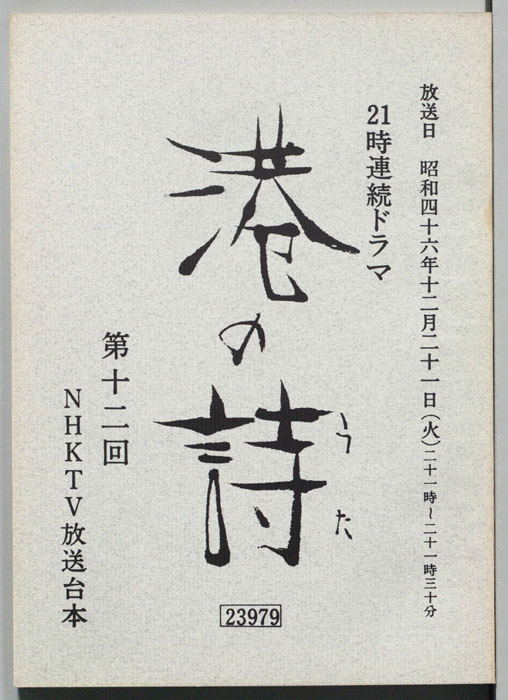 放送日 昭和四十六年十二月二十一日(火)二十一時~二十一時三十分
21時連続ドラマ
港の詩
うた
第十二回
NHKTV放送台本
23979